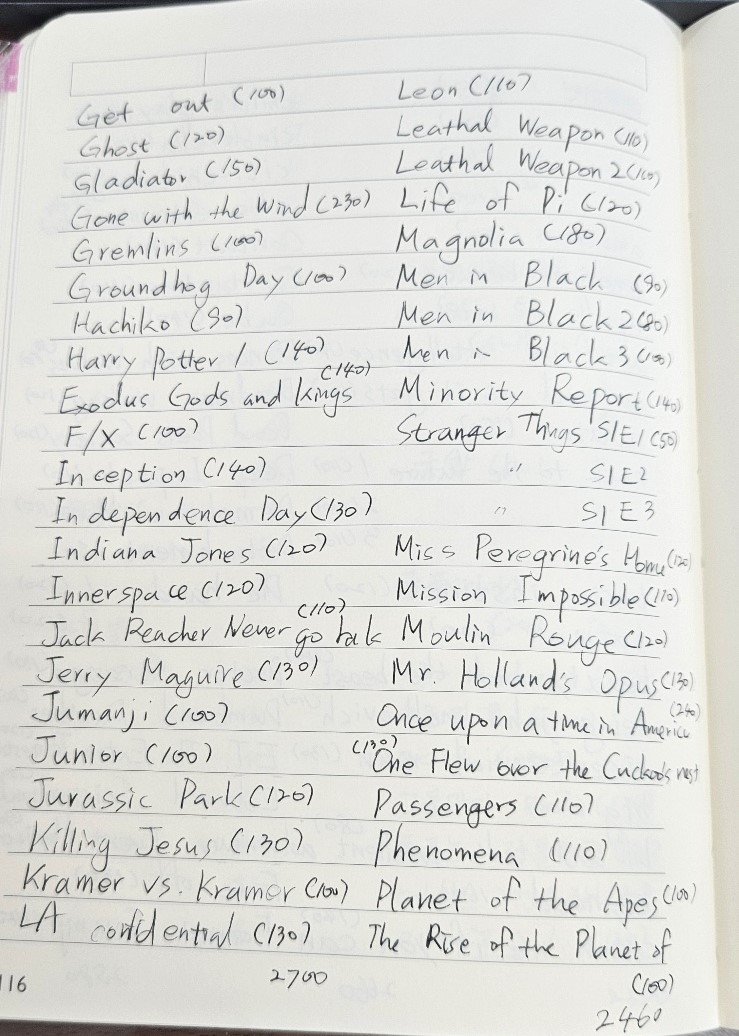 Get out (100)
Ghost (120)
Gladiator (150)
Gone with the Wind (230)
Gremlins (100)
Groundhog Day (100)
Hachiko (90)
Harry Potter 1 (140)
(140)
Exodus Gods and kings
F/X (100)
Inception (140)
Independence Day (130)
Indiana Jones (120)
Innerspace (120)
(110)
Jack Reacher Never go bak
Jerry Maguire (130)
Jumanji (100)
Junior (100)
Jurassic Park (120)
Killing Jesus (130)
Kramer vs. Kramer (100)
LA confidential (130)
2700
Leon (110)
Leathal Weapon (110)
Leathal Weapon 2 (110)
Life of Pi (120)
Magnolia (180)
Men in Black (90)
Men in Black 2 (80)
Men in Black 3 (100)
Minority Report (140)
Stranger Things S1E1 (50)
" S1E2
" S1E3
Miss Peregrine's Home (120)
Mission Impossible (110)
Moulin Rouge (120)
Mr. Holland's Opus (130)
Once upon a time in America
(240)
(130)
One Flew over the Cuckoo's nest
Passengers (110)
Phenomena (110)
Planet of the Apes (100)
The Rise of the Planet of
(100)
2460
116